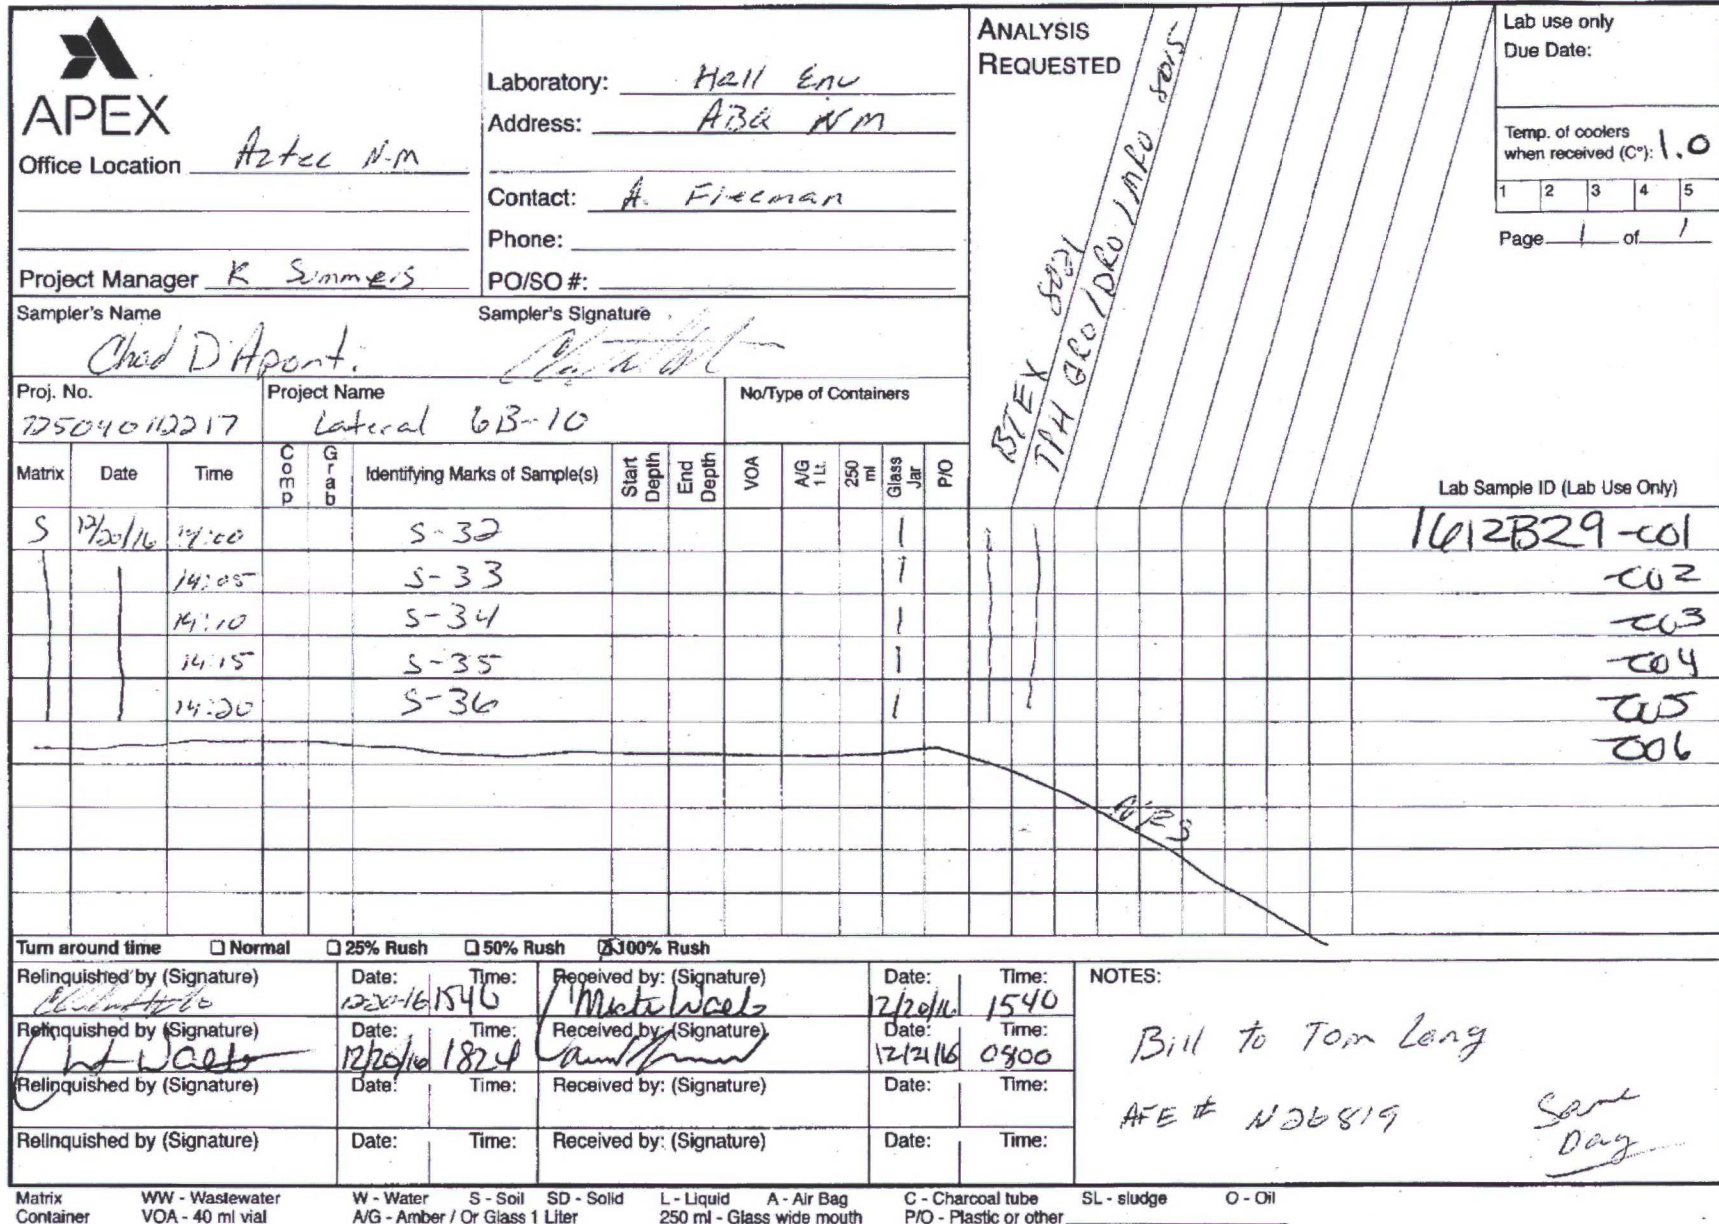 APEX
Office Location Aztec N.M
Project Manager K Summers
Laboratory: Hall Env
Address: ABQ NM
Contact: A. Freeman
Phone:
PO/SO #:
ANALYSIS
REQUESTED
BTEX 8021
TPH GRO / DRO / MRO 8015
Lab use only
Due Date:
Temp. of coolers
when received (C°): 1.0
1 2 3 4 5
Page 1 of 1
Sampler's Name
Chad D'Aponti
Sampler's Signature
Proj. No.
Project Name
No/Type of Containers
725040112217
Lateral 6B-10
Matrix Date Time Comp Grab Identifying Marks of Sample(s) Start Depth End Depth VOA A/G 1 Lt. 250 ml Glass Jar P/O Lab Sample ID (Lab Use Only)
S 12/20/16 14:00 S-32 1 1612B29-001
14:05 S-33 1 -002
14:10 S-34 1 -003
14:15 S-35 1 -004
14:20 S-36 1 -005
-006
Turn around time Normal 25% Rush 50% Rush 100% Rush
Relinquished by (Signature) Date: Time: Received by: (Signature) Date: Time: NOTES:
12-20-16 1540 12/20/16 1540
Relinquished by (Signature) Date: Time: Received by: (Signature) Date: Time:
12/20/16 1824 12/21/16 0800
Bill to Tom Long
Relinquished by (Signature) Date: Time: Received by: (Signature) Date: Time:
AFE # N26819
Same
Day
Relinquished by (Signature) Date: Time: Received by: (Signature) Date: Time:
Matrix WW - Wastewater W - Water S - Soil SD - Solid L - Liquid A - Air Bag C - Charcoal tube SL - sludge O - Oil
Container VOA - 40 ml vial A/G - Amber / Or Glass 1 Liter 250 ml - Glass wide mouth P/O - Plastic or other